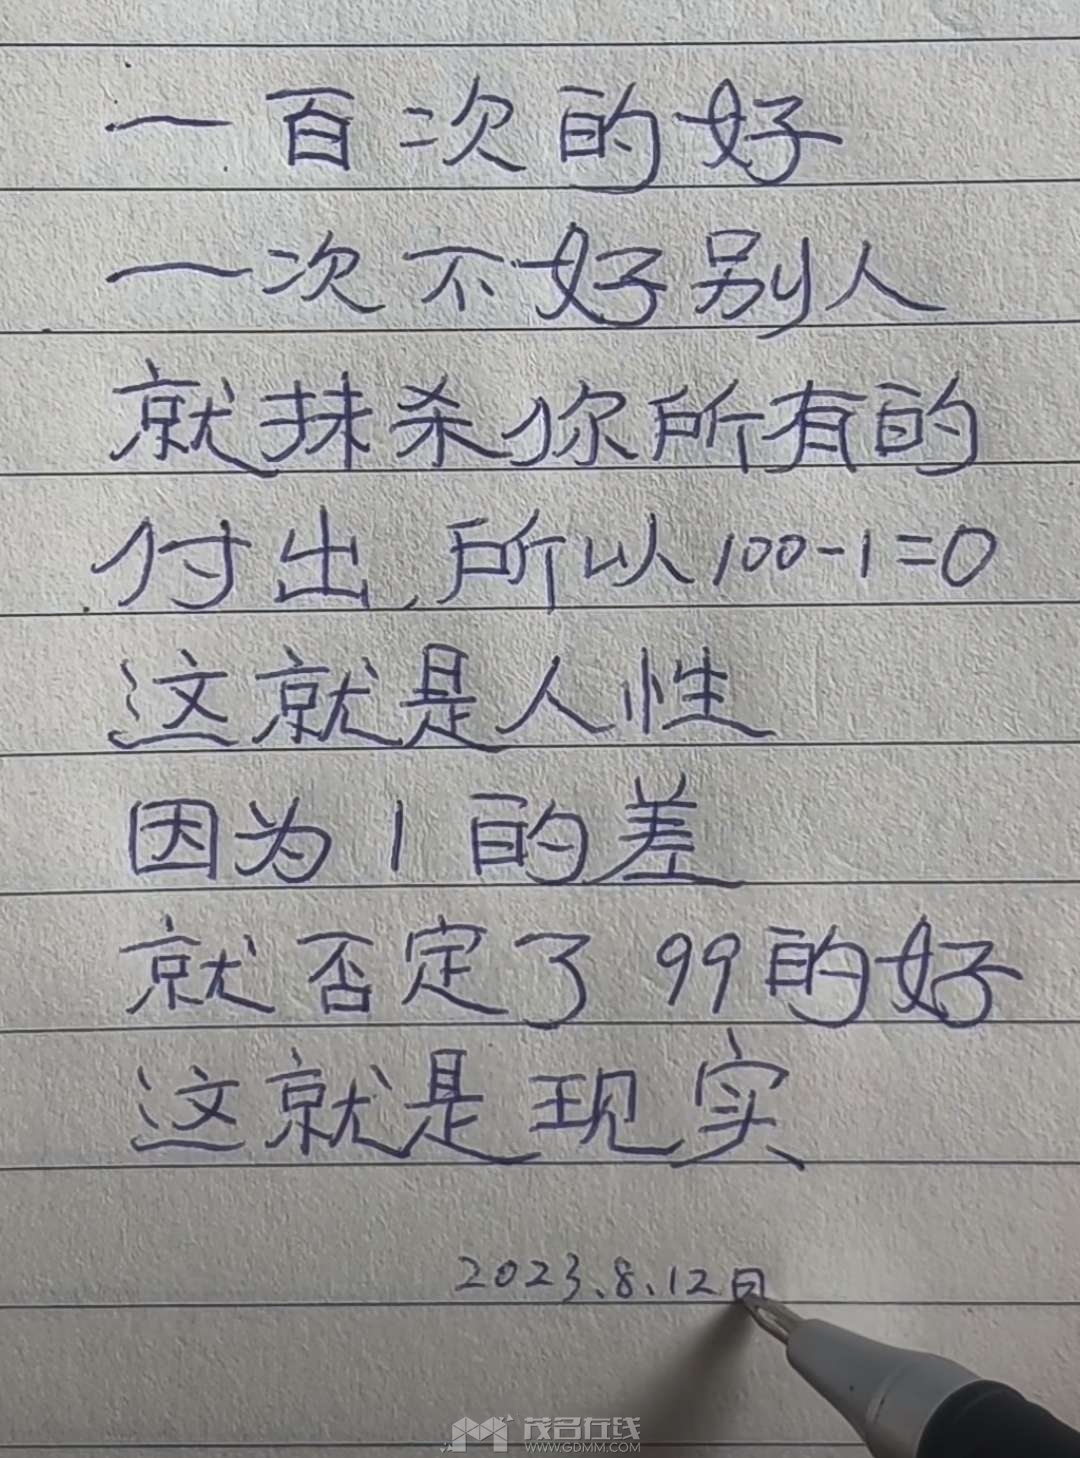 一百次的好
一次不好别人
就抹杀你所有的
付出,所以100-1=0
这就是人性
因为1的差
就否定了99的好
这就是现实
2023.8.12日
茂名在线
WWW.GDMM.COM